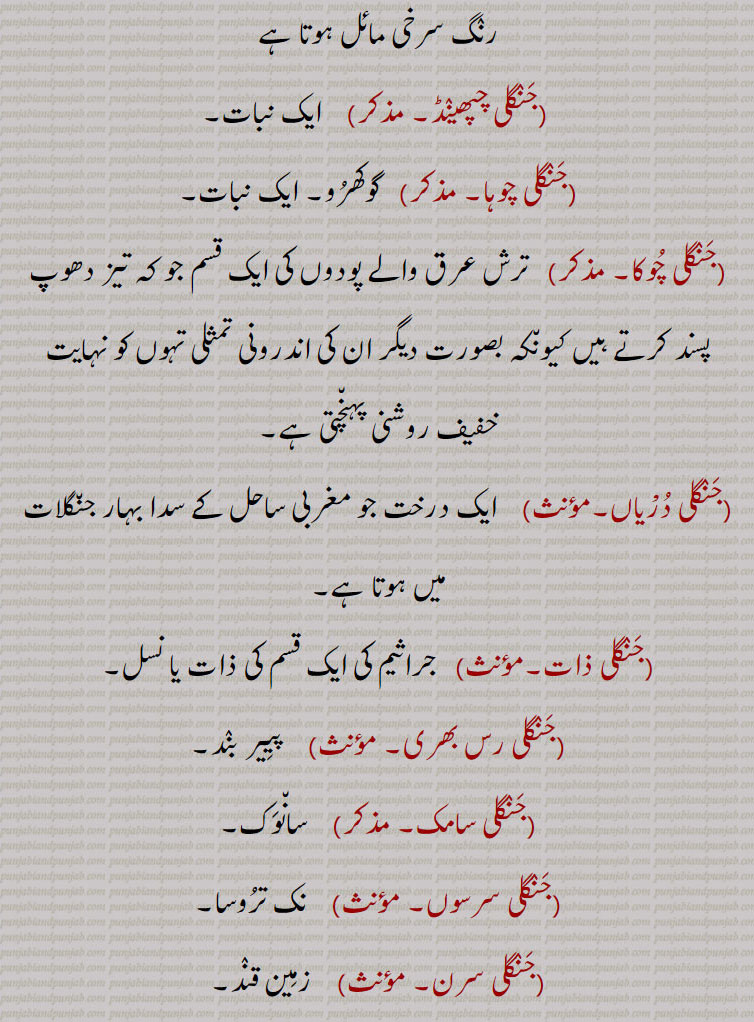 رنگ سرخی مائل ہوتا ہے
(جَنْگلی چِھینْڈ۔ مذکر) ایک نبات۔
(جَنْگلی چوہا۔ مذکر) گوکھرُو۔ ایک نبات۔
(جَنْگلی چُوکا۔ مذکر) ترش عرق والے پودوں کی ایک قسم جو کہ تیز دھوپ
پسند کرتے ہیں کیونکہ بصورت دیگر ان کی اندرونی تمثلی تہوں کو نہایت
خفیف روشنی پہنچتی ہے۔
(جَنْگلی دُرْیاں۔ مؤنث) ایک درخت جو مغربی ساحل کے سدا بہار جنگلات
میں ہوتا ہے۔
(جَنْگلی ذات۔ مؤنث) جراثیم کی ایک قسم کی ذات یا نسل۔
(جَنْگلی رس بھری۔ مؤنث) پیپر بنْد۔
(جَنْگلی سامک۔ مذکر) سانْوَک۔
(جَنْگلی سرسوں۔ مؤنث) نک ترُوسا۔
(جَنْگلی سرن۔ مؤنث) زمِین قنْد۔